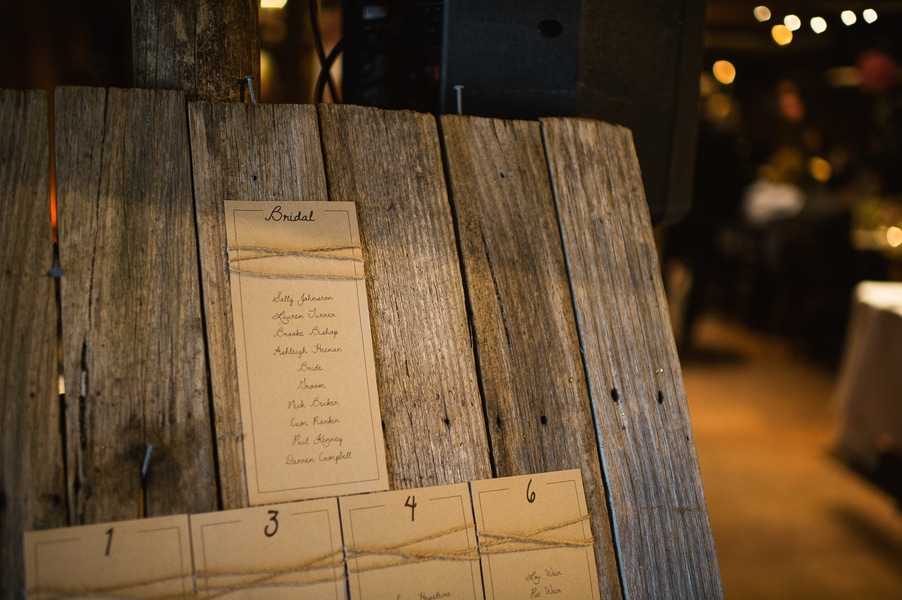 Bridal
Sally Johnston
Lauren Turner
Brooke Bishop
Ashleigh Heenan
Bride
Groom
Nick Becken
Cam Rankin
Paul Kenney
Darren Campbell
1 3 4 6
Weir
Pat Weir